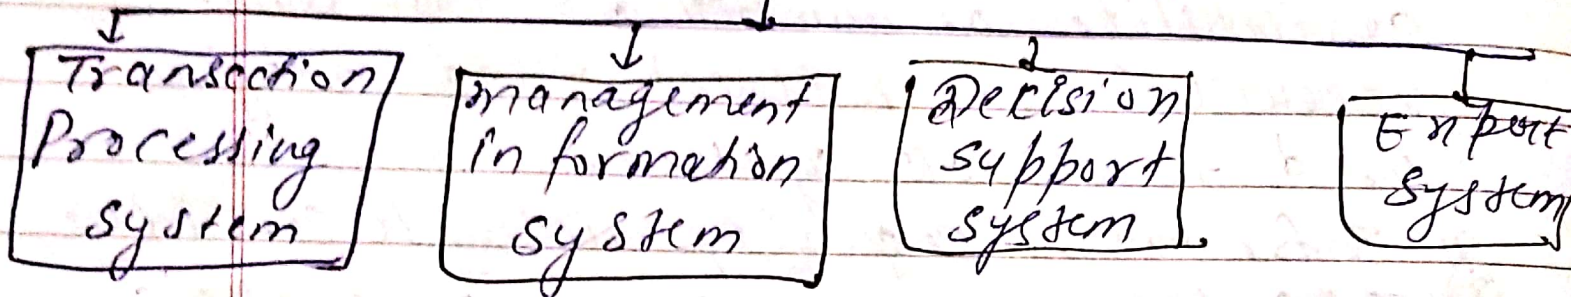 Transection
Processing
system
management
information
system
Decision
support
system
Expert
system